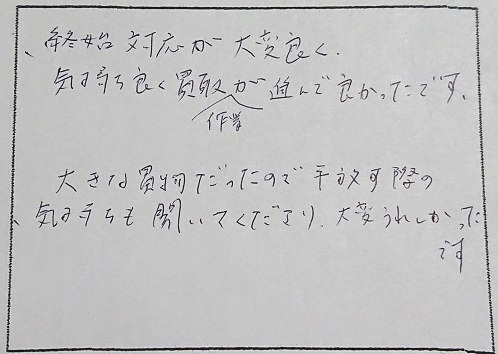 、終始対応が大変良く、
気持ち良く買取が進んで良かったです。
作業
大きな買物だったので手放す際の
、気持ちも聞いてくださり、大変うれしかった
です